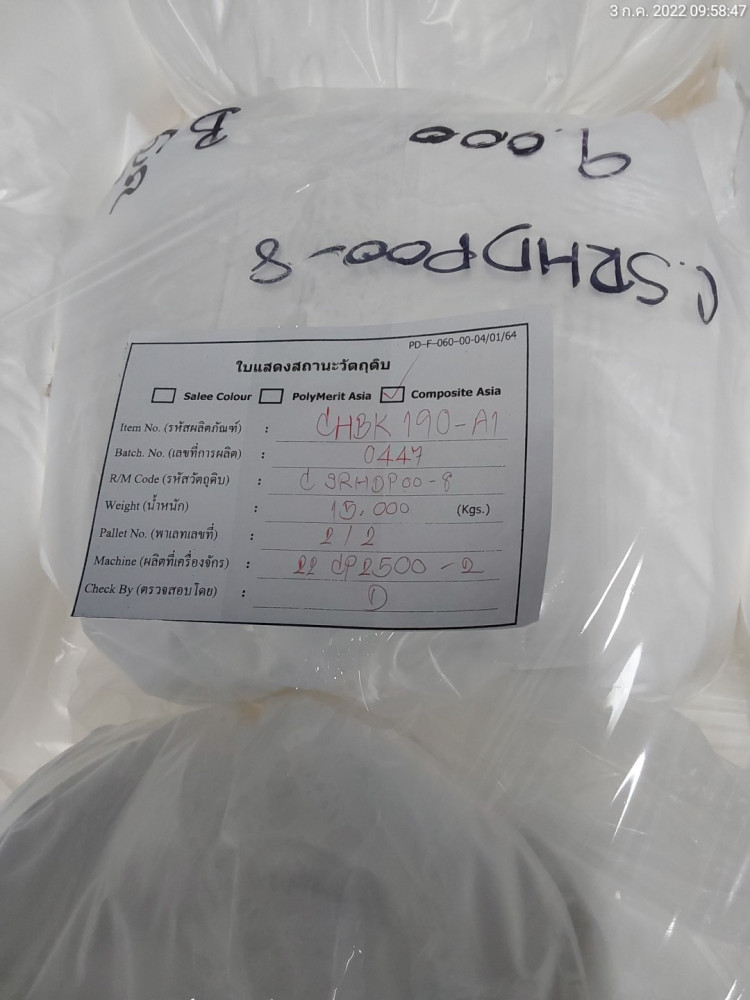 3 ก.ค. 2022 09:58:47
9.000
CSRHDP00-8
PD-F-060-00-04/01/64
ใบแสดงสถานะวัตถุดิบ
Salee Colour PolyMerit Asia Composite Asia
Item No. (รหัสผลิตภัณฑ์) : CHBK 190-A1
Batch. No. (เลขที่การผลิต) : 0447
R/M Code (รหัสวัตถุดิบ) : CSRHDP00-8
Weight (น้ำหนัก) : 15.000 (Kgs.)
Pallet No. (พาเลทเลขที่) : 2/2
Machine (ผลิตที่เครื่องจักร) : 22 CP2500-2
Check By (ตรวจสอบโดย) :